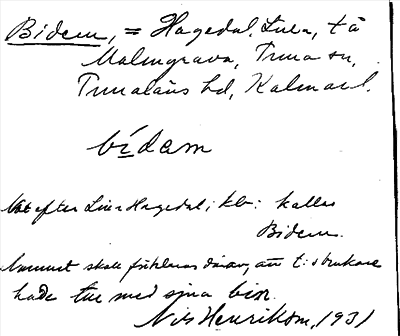 Bidem, = Hagedal, Luer, t å
Malmgrava, Tuna sn,
Tunaläns hd, Kalmar l.
bídam
Not efter Hagedal; kb: kallas
Bidem.
Namnet skall förklaras därav, att t: s brukare
hade tue med sina bin.
Nils Henrikson, 1931